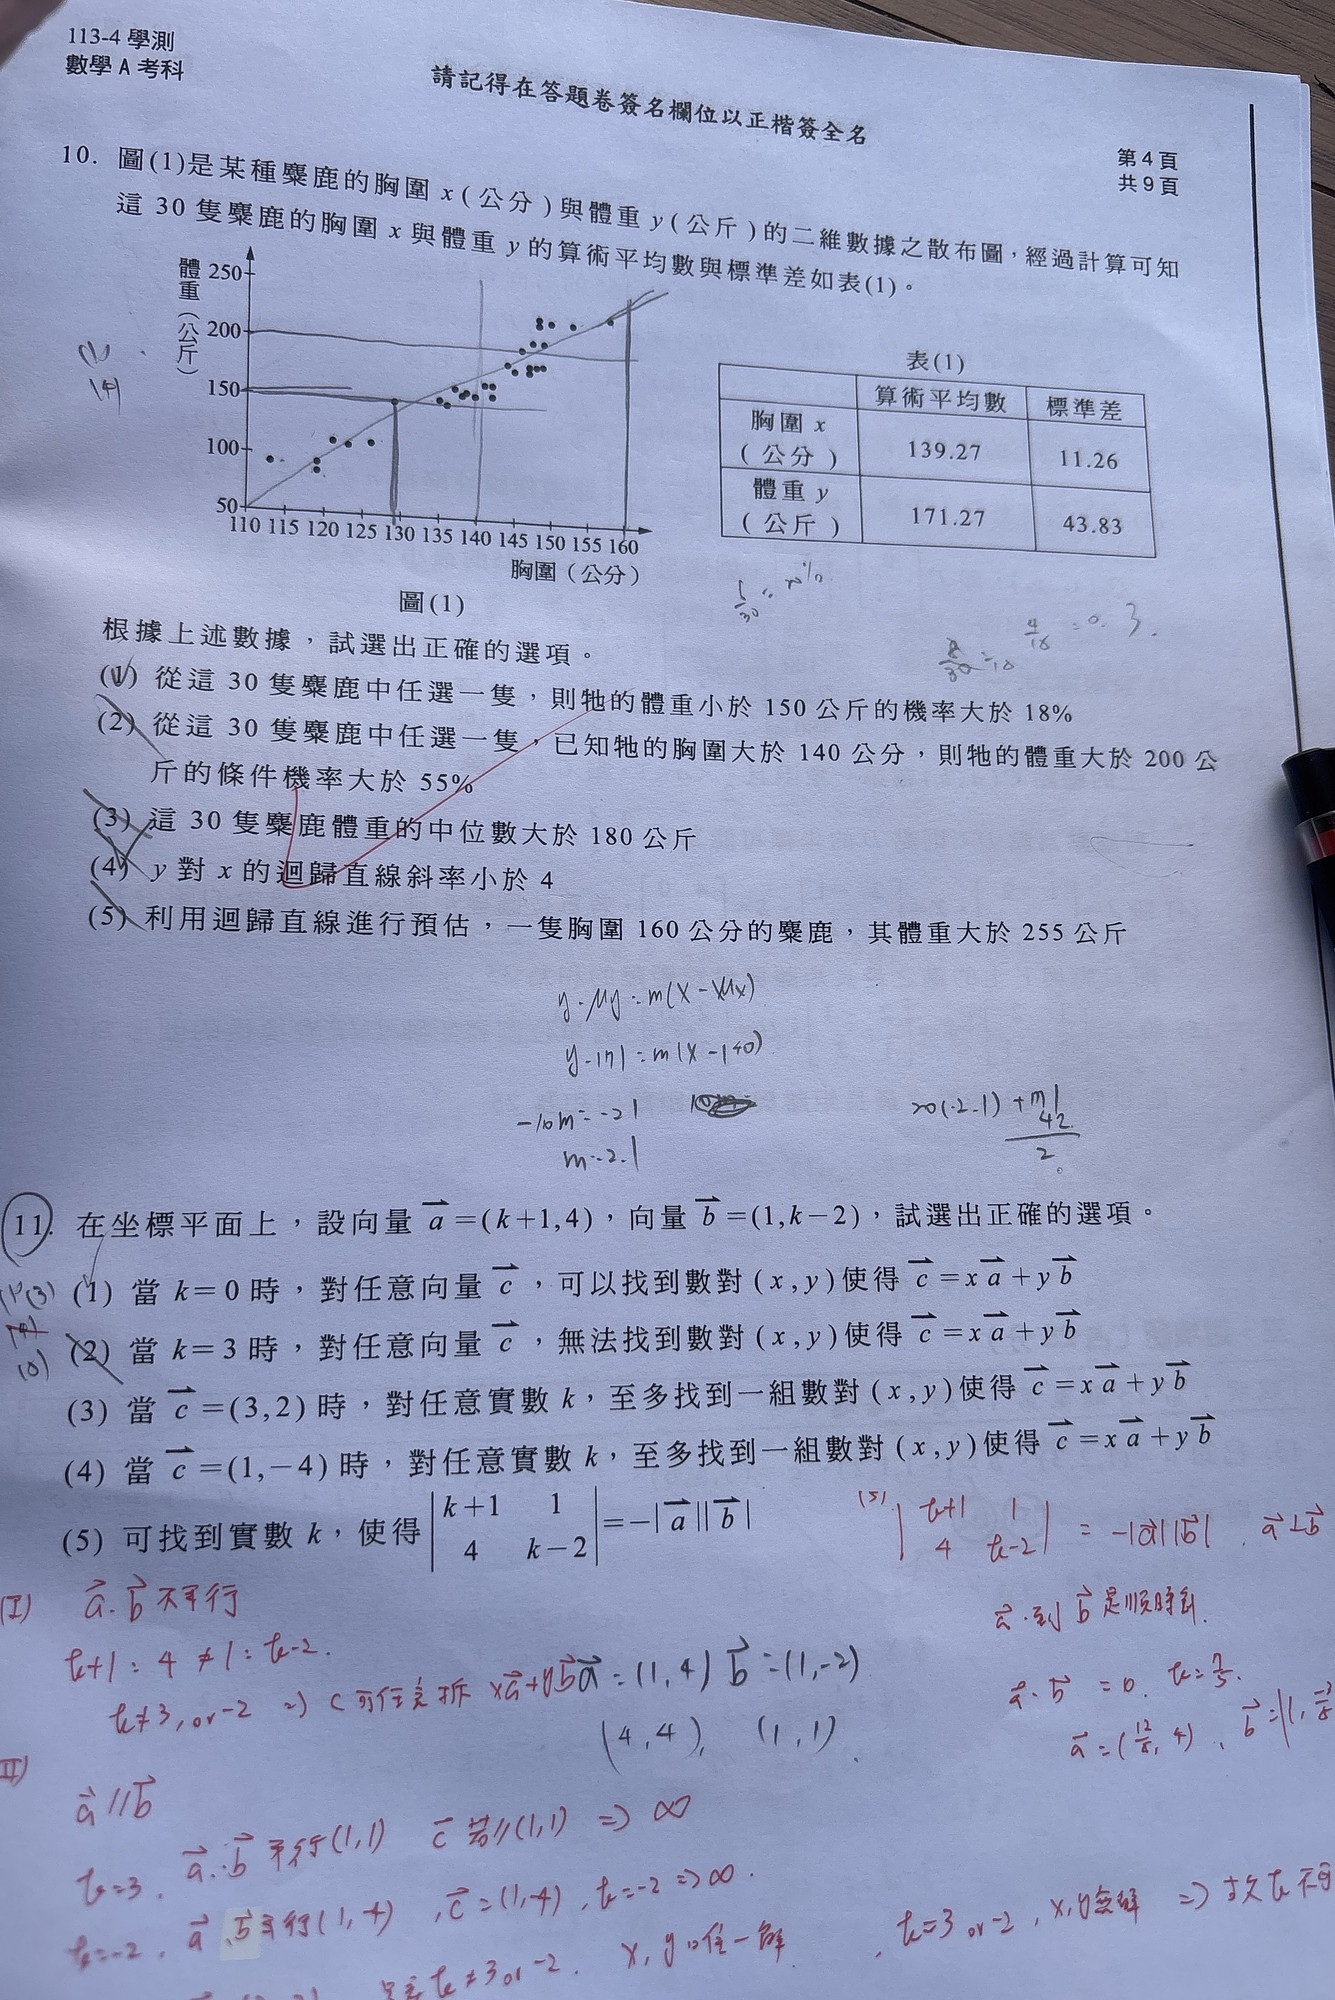 113-4 學測
數學 A 考科
請記得在答題卷簽名欄位以正楷簽全名
第 4 頁
共 9 頁
10. 圖(1)是某種麋鹿的胸圍 x(公分)與體重 y(公斤)的二維數據之散布圖，經過計算可知
這 30 隻麋鹿的胸圍 x 與體重 y 的算術平均數與標準差如表(1)。
體重（公斤）
250
200
150
100
50
110 115 120 125 130 135 140 145 150 155 160
胸圍（公分）
圖(1)
(1)
(4)
表(1)
算術平均數 標準差
胸圍 x
(公分) 139.27 11.26
體重 y
(公斤) 171.27 43.83
根據上述數據，試選出正確的選項。
(1) 從這 30 隻麋鹿中任選一隻，則牠的體重小於 150 公斤的機率大於 18%
(2) 從這 30 隻麋鹿中任選一隻，已知牠的胸圍大於 140 公分，則牠的體重大於 200 公
斤的條件機率大於 55%
(3) 這 30 隻麋鹿體重的中位數大於 180 公斤
(4) y 對 x 的迴歸直線斜率小於 4
(5) 利用迴歸直線進行預估，一隻胸圍 160 公分的麋鹿，其體重大於 255 公斤
y-μy=m(x-μx)
y-171=m(x-140)
-10m=-21
m=2.1
20(2.1)+171
42
11. 在坐標平面上，設向量 a=(k+1,4)，向量 b=(1,k-2)，試選出正確的選項。
(1) 當 k=0 時，對任意向量 c，可以找到數對 (x,y)使得 c=xa+yb
(2) 當 k=3 時，對任意向量 c，無法找到數對 (x,y)使得 c=xa+yb
(3) 當 c=(3,2) 時，對任意實數 k，至多找到一組數對 (x,y)使得 c=xa+yb
(4) 當 c=(1,-4) 時，對任意實數 k，至多找到一組數對 (x,y)使得 c=xa+yb
(5) 可找到實數 k，使得 |k+1 1
4 k-2| =-|a||b|
(5) |k+1 1
4 k-2| = -|a||b|, a⊥b
a 到 b 是順時針.
a·b = 0, k=7/5.
a=(12/5, 4), b=(1, -3/5
(I) a, b 不平行
k+1:4≠1:k-2.
k≠3, or -2 => c 可任意拆 xa+yb
a=(1,4) b=(1,-2)
(4,4), (1,1).
II) a//b
k=3, a, b 平行(1,1) c 若//(1,1) => ∞
k=-2, a, b 平行(1,-4), c=(1,-4), k=-2 => ∞.
k≠3 or -2. x, y 唯一解
k=3 or -2, x,y無解 => 故 k 不